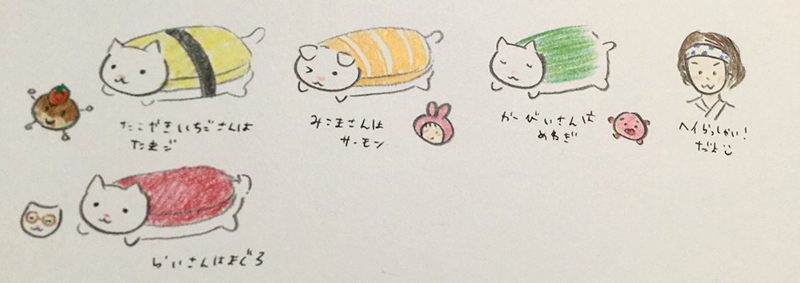 たこやきいちごさんは
たまご
みこまさんは
サーモン
かーびいさんは
めねぎ
ヘイらっしゃい!
だよ
らいさんはまぐろ